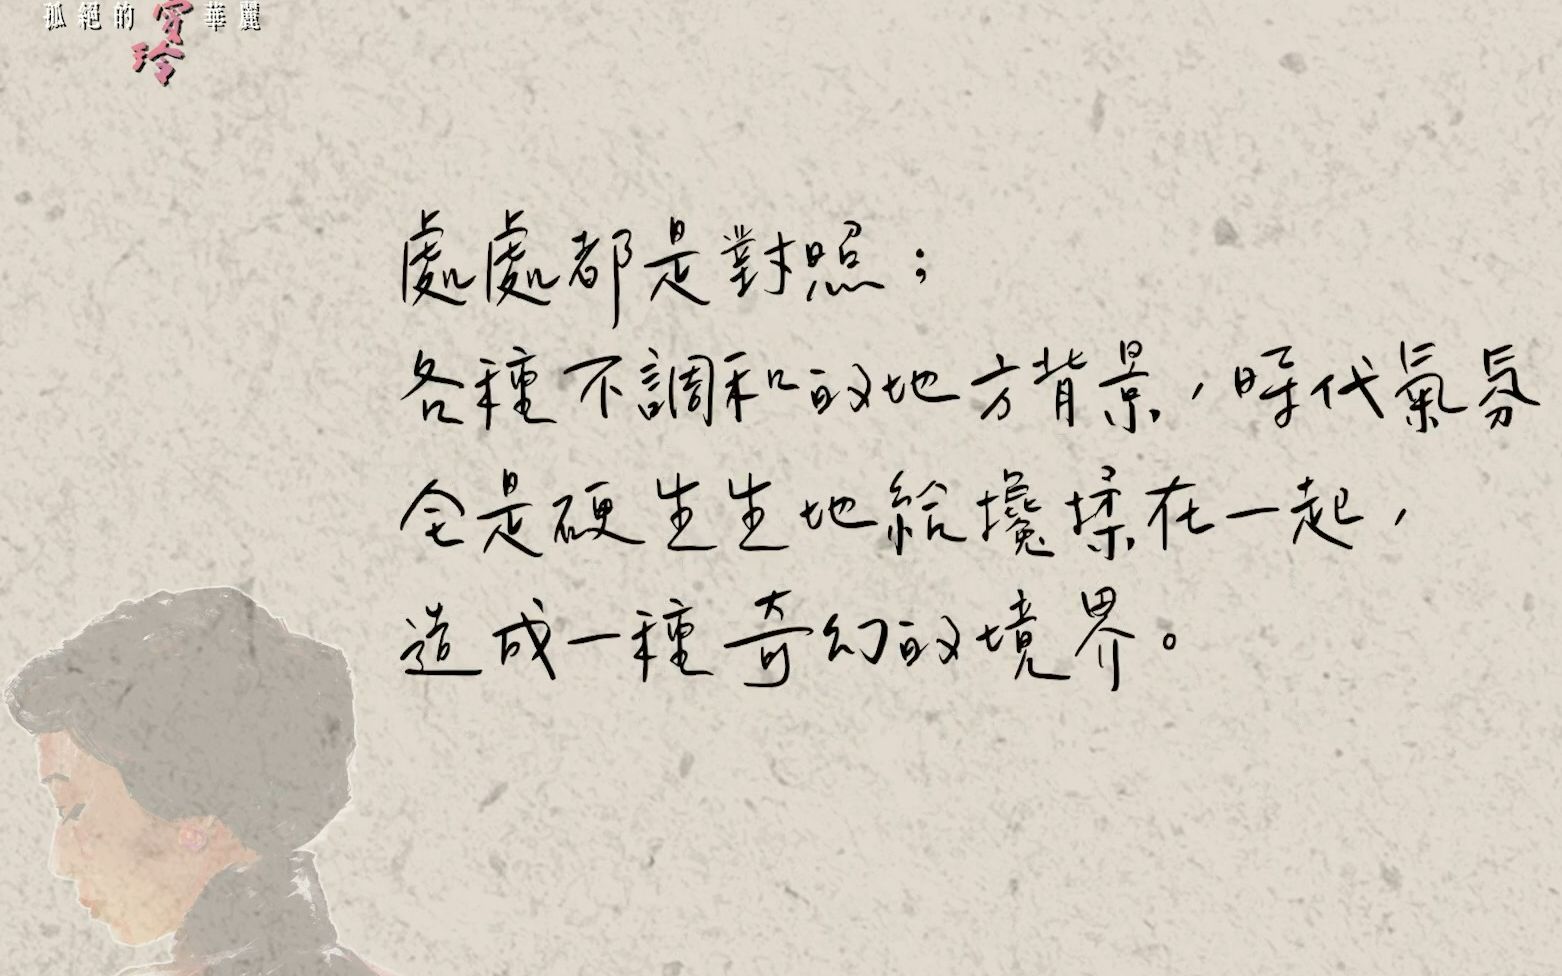 孤絕的 華麗
愛玲
處處都是對照；
各種不調和的地方背景，時代氣氛
全是硬生生地給攙揉在一起，
造成一種奇幻的境界。